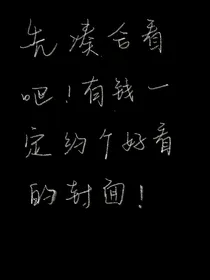 先凑合看
吧!有钱一
定约个好看
的封面!